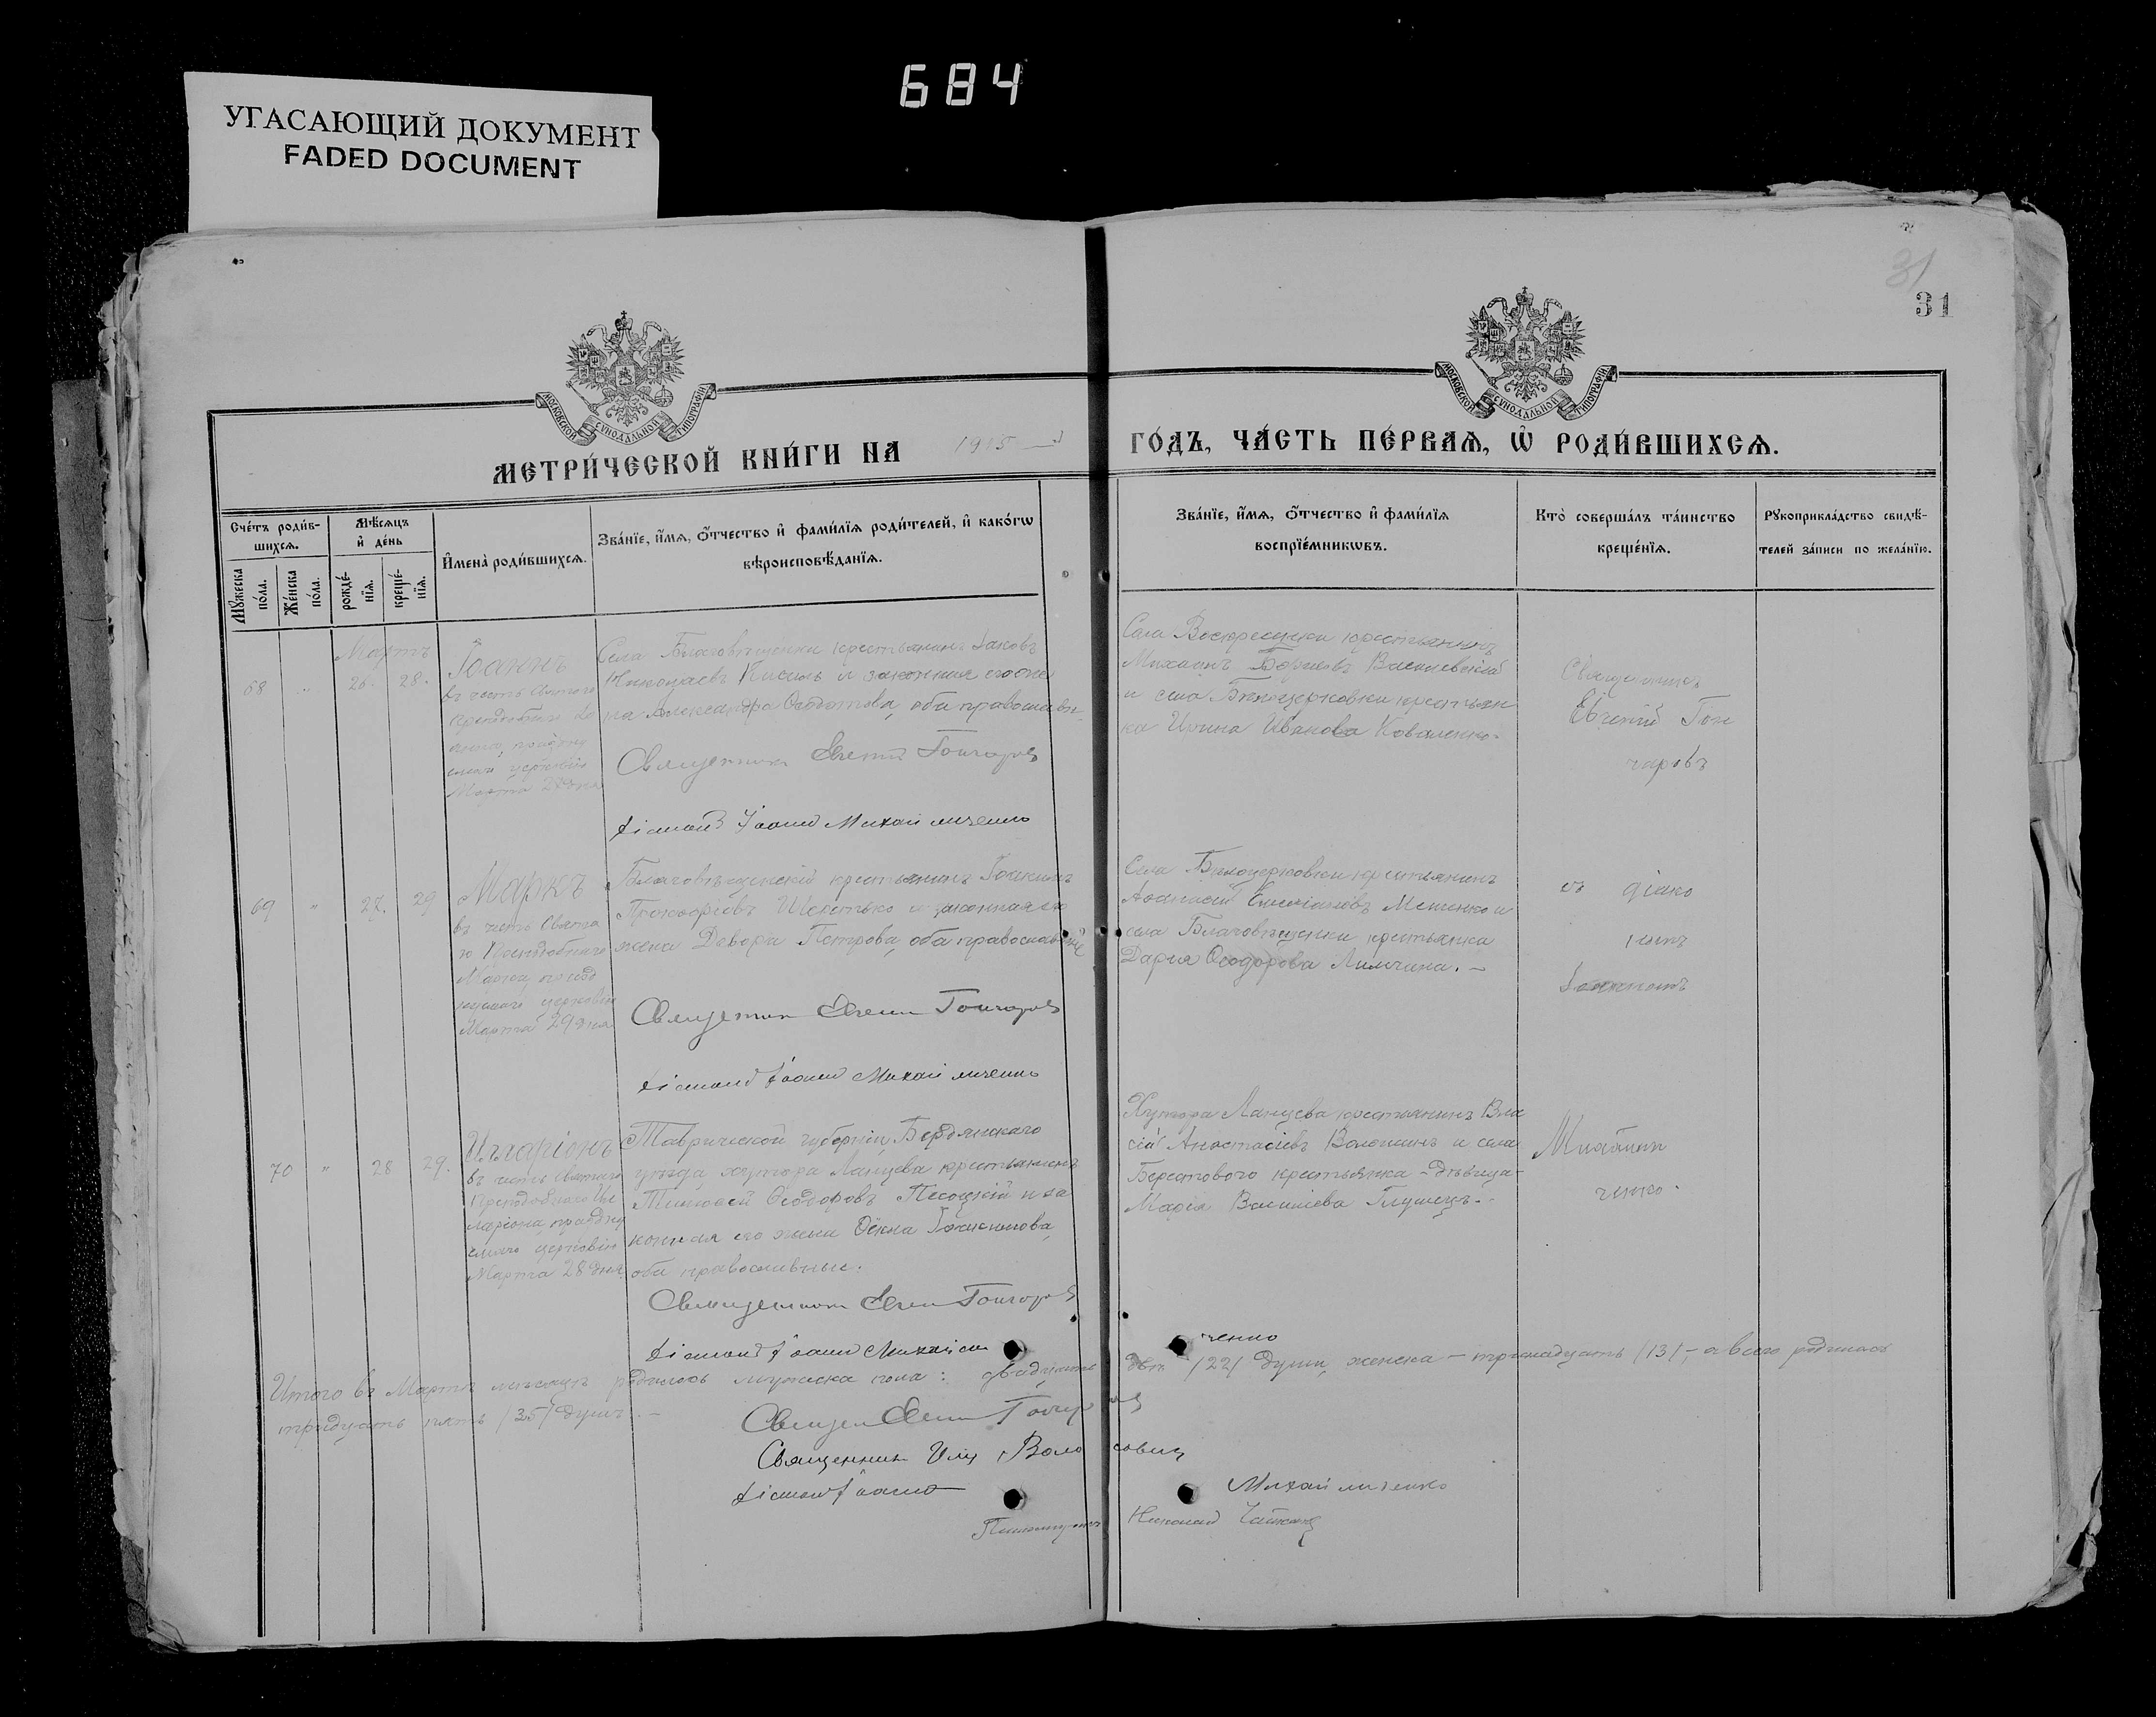 684
УГАСАЮЩИЙ ДОКУМЕНТ
FADED DOCUMENT
31
31
МОСКОВСКОЙ СУНОДАЛЬНОЙ ТИПОГРАФІИ
МОСКОВСКОЙ СУНОДАЛЬНОЙ ТИПОГРАФІИ
МЕТРИ́ЧЕСКОЙ КНИ́ГИ НА 1915
ГО́ДЪ, ЧА́СТЬ ПЕ́РВАѦ, Ѡ҆ РОДИ́ВШИХСѦ.
Сче́тъ роди́в-
шихсѧ.
Мꙋ́жеска по́ла.
Же́нска по́ла.
Мѣ́сѧцъ
и҆ де́нь
рожде́-
нїѧ.
креще́-
нїѧ.
И҆мена̀ роди́вшихсѧ.
Зва́нїе, и҆́мѧ, ѻ҆́тчество и҆ фами́лїѧ роди́телей, и҆ како́гѡ
вѣроисповѣ́данїѧ.
Зва́нїе, и҆́мѧ, ѻ҆́тчество и҆ фами́лїѧ
воспрїе́мникѡвъ.
Кто̀ соверша́лъ та́инство
креще́нїѧ.
Рꙋкоприкла́дство свидѣ́-
телей за́писи по жела́нїю.
Мартъ
68 " 26. 28.
Іоаннъ
въ честь Святого
Преподобнаго Іо
анна, праздну
емаго церковію
Марта 28 дня
Села Благовѣщенки крестьянинъ Іаковъ
Николаевъ Кисиль и законная его же
на Александра Ѳеодотова, оба православн.
Священникъ Евгеній Гончаровъ
Діаконъ Іоаннъ Михайличенко
Села Воскресенки крестьянинъ
Михаилъ Борисовъ Василевскій
и села Бѣлоцерковки крестьян
ка Ирина Иванова Коваленко.
Священникъ
Евгеній Гон
чаровъ
69 " 27. 29
Маркъ
въ честь Свята
го Преподобнаго
Марка, празд
нуемаго церковію
Марта 29 дня
Благовѣщенскій крестьянинъ Іоакимъ
Прокофіевъ и законная его
жена Девора Петрова, оба православные
Священникъ Евгеній Гончаровъ
Діаконъ Іоаннъ Михайличенко
Села Бѣлоцерковки крестьянинъ
Аѳанасій
села Благовѣщенки крестьянка
Дарія Ѳеодорова
съ діако
номъ
Іоанномъ
70 " 28 29.
Иларіонъ
въ честь Святаго
Преподобнаго Ил
ларіона, праздну
емаго церковію
Марта 28 дня
Таврической губерніи, Бердянскаго
уѣзда хутора Ланцева крестьянинъ
Тимоѳей Ѳеодоровъ Песоцкій и за
конная его жена Ѳекла Іоакимова,
оба православные.
Священникъ Евгеній Гончаровъ
Діаконъ Іоаннъ Михайли
ченко
Хутора Ланцева крестьянинъ Вла
сій Анастасіевъ Волошинъ и села
Берестового крестьянка-дѣвица
Марія Василіева Глущецъ.
Михайли
ченко.
Итого въ Мартѣ мѣсяцѣ родилось мужеска пола: двадцать
двѣ /22/ души, женска - тринадцать /13/, а всего родилось
тридцать пять /35/ душъ. -
Священ Евгеній Гончаровъ
Священникъ Илія Волосовичъ
Діаконъ Іоаннъ
Михайличенко
Николай